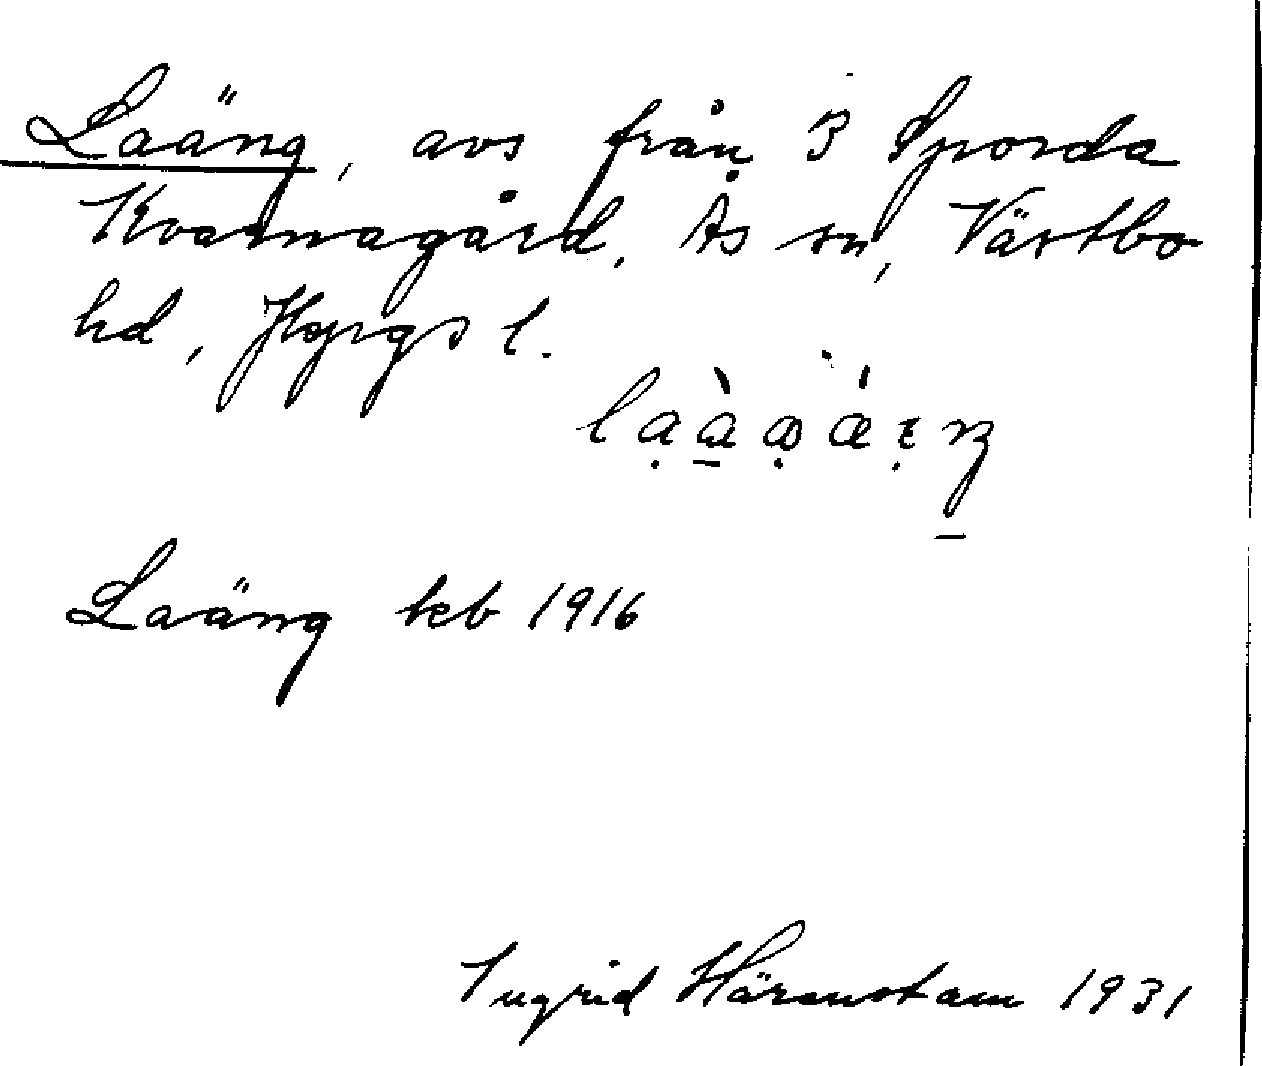 Laäng, avs från 3 Sporda
Kvarnagård, Ås sn, Västbo
hd, Jkpgs l.
Laäng keb 1916
Ingrid Härenstam 1931